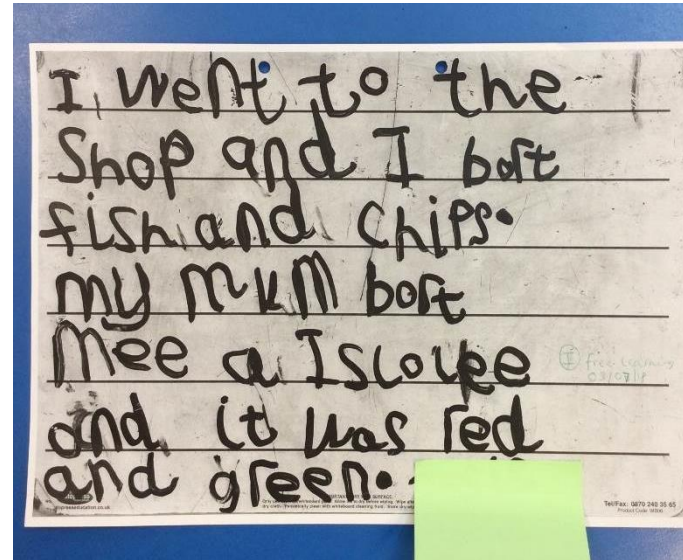 I went to the
Shop and I bort
fish and chips.
my mum bort
Mee a Islolee
and it was red
and green.
I free learning
03/07/18
Tel/Fax: 0870 240 35 65